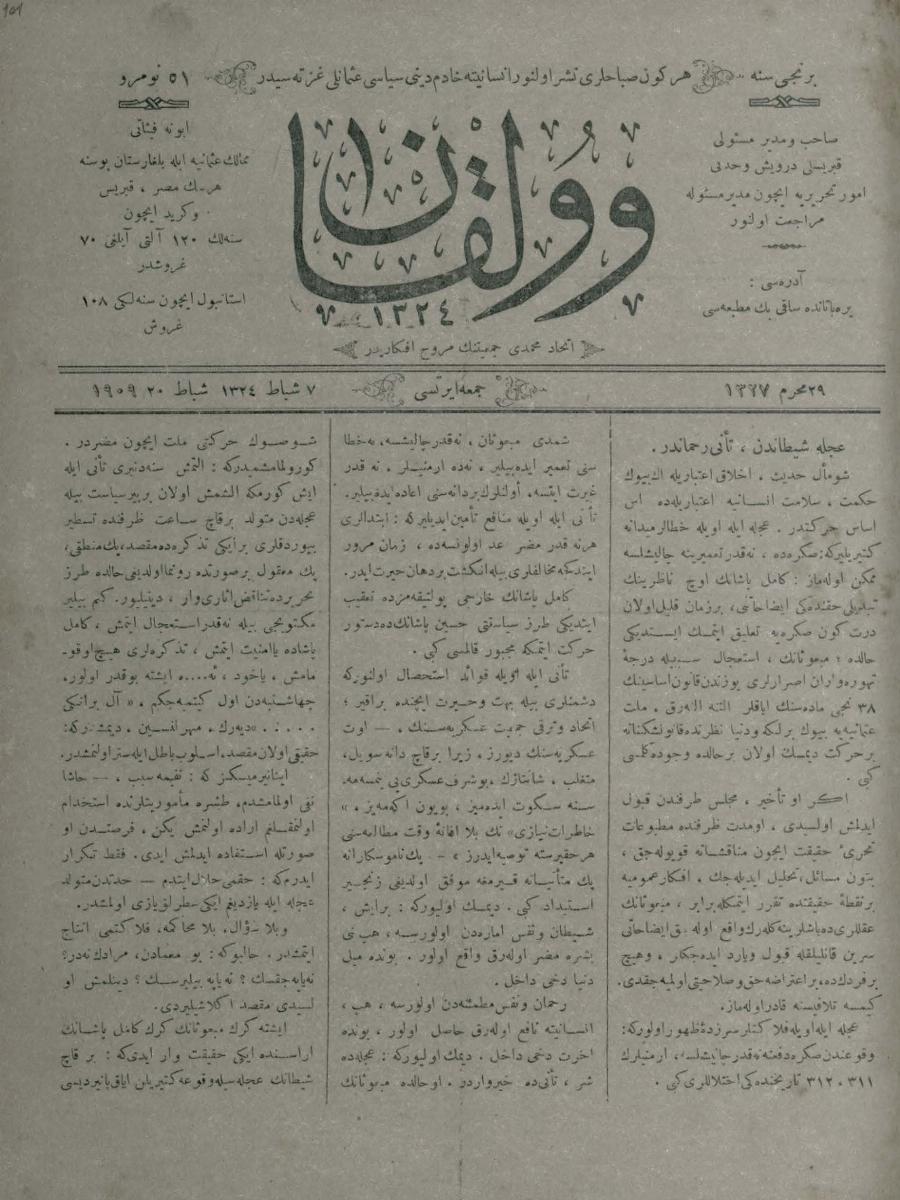 101
برنجی سنه
هر كون صباحلری نشر اولنور انسانيته خادم دينی سياسی عثمانلی غزته سيدر
٥١ نومرو
صاحب و مدير مسئولی
قبريسلی درويش وحدتی
امور تحريريه ايچون مدير مسئوله
مراجعت اولنور
آدره سی :
يره باتانده ساقی بك مطبعه سی
وولقان
١٣٢٤
اتحاد محمدی جمعيتنك مروج افكاريدر
ابونه فيئاتی
ممالك عثمانيه ايله بلغارستان بوسنه
هرسك مصر ، قبريس
وكريد ايچون
سنه لك ١٢٠ آلتی آيلغی ٧٠
غروشدر
استانبول ايچون سنه لكی ١٠٨
غروش
٢٩ محرم ١٣٢٧
جمعه ايرتسی
٧ شباط ١٣٢٤ شباط ٢٠ ١٩٠٩
عجله شيطاندن ، تأنی رحماندر .
شو مأل حديث ، اخلاق اعتباريله اك بيوك
حكمت ، سلامت انسانيه اعتباريله ده اس
اساس حركتدر . عجله ايله اويله خطالر ميدانه
كتيريليركه : صكره ده ، نه قدر تعميرينه چاليشلسه
ممكن اوله ماز : كامل پاشانك اوچ ناظرينك
تبديلی حقنده كی ايضاحاتنی ، بر زمان قليل اولان
درت كون صكره يه تعليق ايتمك ايستديكی
حالده ؛ مبعوثانك ، استعجال سببيله درجهٔ
تهوره واران اصرارلری يوزندن قانون اساسينك
٣٨ نجی ماده سنك اياقلر التنه اله رق . ملت
عثمانيه يه بيوك بر لكه و دنيا نظرنده قانونشكنانه
بر حركت ديمك اولان بر حالده وجوده كلسی
كبی .
اكر او تأخير ، مجلس طرفندن قبول
ايدلمش اولسيدی ، اومدت ظرفنده مطبوعات
تحری حقيقت ايچون مناقشاته قويوله جق ،
بتون مسائل ، تحليل ايديله جك . افكار عموميه
بر نقطهٔ حقيقتده تقرر ايتمكله برابر ، مبعوثانك
عقللری ده باشلرينه كله رك واقع اوله جق ايضاحاتی
سرين قانليلقله قبول ويا رد ايده جكلر ، و هيچ
بر فردك ده ، بر اعتراضه حق و صلاحيتی اولميه جقدی .
كيمسه تلافيسنه قادر اوله ماز .
عجله ايله اويله فلاكتلر سرزدهٔ ظهور اولوركه :
وقوعندن صكره دفعنه نه قدر چاليشلسه ، ارمنيلرك
٣١١ ، ٣١٢ تاريخنده كی اختلاللری كبی .
شمدی مبعوثان ، نه قدر چاليشسه ، نه خطا
سنی تعمير ايده بيلير ، نه ده ارمنيلر . نه قدر
غيرت ايتسه ، أولنلرك بردانه سنی اعاده ايده بيلير .
تأنی ايله اويله منافع تأمين ايديليركه : ابتدالری
هر نه قدر مضر عد اولونسه ده ، زمان مرور
ايتدكجه مخالفلری بيله انكشت بر دهان حيرت ايدر .
كامل پاشانك خارجی پولتيقه مزده تعقيب
ايتديكی طرز سياستی حسين پاشانك ده دستور
حركت ايتمكه مجبور قالمسی كبی .
تأنی ايله اويله فوائد استحصال اولنوركه
دشمنلری بيله بهت و حيرت ايچنده براقير ؛
اتحاد و ترقی جمعيت عسكريه سنك . — اوت
عسكريه سنك ديورز ، زيرا برقاچ دانه سويل ،
متغلب ، شانتاژك ، بو شرف عسكری يی بنمسه مه
سنه سكوت ايده ميز ، بويون اكه ميز . »
خاطرات نيازی » نك بلا افاتهٔ وقت مطالعه سنی
هر حقپرسته توصيه ايدرز » — پك ناموسكارانه
پك متأنيانه قيرمغه موفق اولديغی زنجير
استبداد كبی . ديمك اوليوركه : برايش ،
شيطان و نفس اماره دن اولورسه ، هب نی
بشره مضر اوله رق واقع اولور . بونده ميل
دنيا دخی داخل .
رحمان و نفس مطمئنه دن اولورسه ، هب ،
انسانيته نافع اوله رق حاصل اولور ، بونده
اخرت دخی داخل . ديمك اوليوركه : عجله ده
شر ، تأنی ده خير واردر . او حالده مبعوثانك
شو صوك حركتی ملت ايچون مضردر .
كورولمامشميدركه : التمش سنه دنبری تأنی ايله
ايش كورمكه الشمش اولان بر پير سياست بيله
عجله دن متولد برقاچ ساعت ظرفنده تسطير
بيوردقلری برايكی تذكره ده مقصد ، پك منطقی ،
پك معقول بر صورتده رونما اولديغی حالده طرز
تحريرده تناقض اثاری وار ، دينيليور . كيم بيلير
مكتوبجی بيله نه قدر استعجال ايتمش ، كامل
پاشاده يا امنيت ايتمش ، تذكره لری هيچ اوقو-
مامش ، ياخود ، نه .... ايشته بو قدر اولور .
چهاشنبه دن اول كيتميه جكم . » آل برانيكی
. . . . . « ديه رك . مهرلنسين . ديمشزكه :
حقيقی اولان مقصد ، اسلوب باطل ايله ستر اولنمشدر .
اينانيرميسكز كه : نفيمه سبب ، — حاشا
نفی اولمامشدم ، طشره مأموريتلرنده استخدام
اولنمقلغم اراده اولنمش يكن . فرصتدن او
صورتله استفاده ايدلمش ايدی . فقط تكرار
ايدرم كه : حقمی حلال ايتدم — حدتدن متولد
عجله ايله يازديغم ايكی سطرلق يازی اولمشدر .
و بلا سؤال . بلا محاكمه ، فلاكتمی انتاج
ايتمشدر . حالبوكه : بو معمادن ، مرادك نه در؟
نه ياپه جقسك ؟ نه ياپه بيليرسك ؟ دينلمش او
لسيدی مقصد اكلاشيليردی .
ايشته كرك مبعوثانك كرك كامل پاشانك
اراسنده ايكی حقيقت وار ايدی كه : بر قاچ
شيطانك عجله سيله وقوعه كتيريلن اياق پاتيرديسی